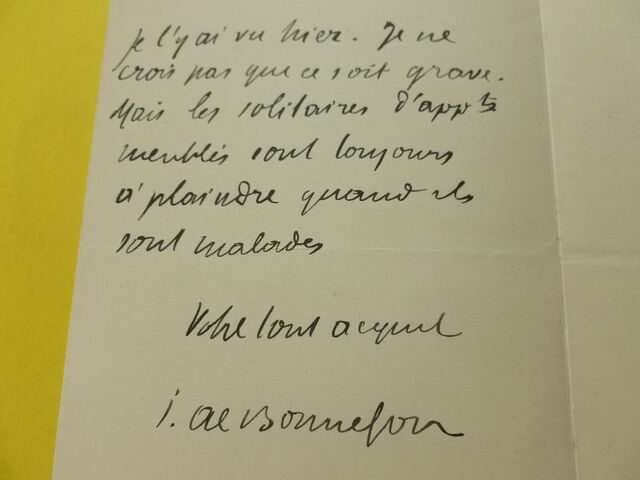 Je l'y ai vu hier. Je ne
crois pas que ce soit grave.
Mais les solitaires d'appts
meublés sont toujours
à plaindre quand ils
sont malades
Votre tout acquis
J. de Bonnefon